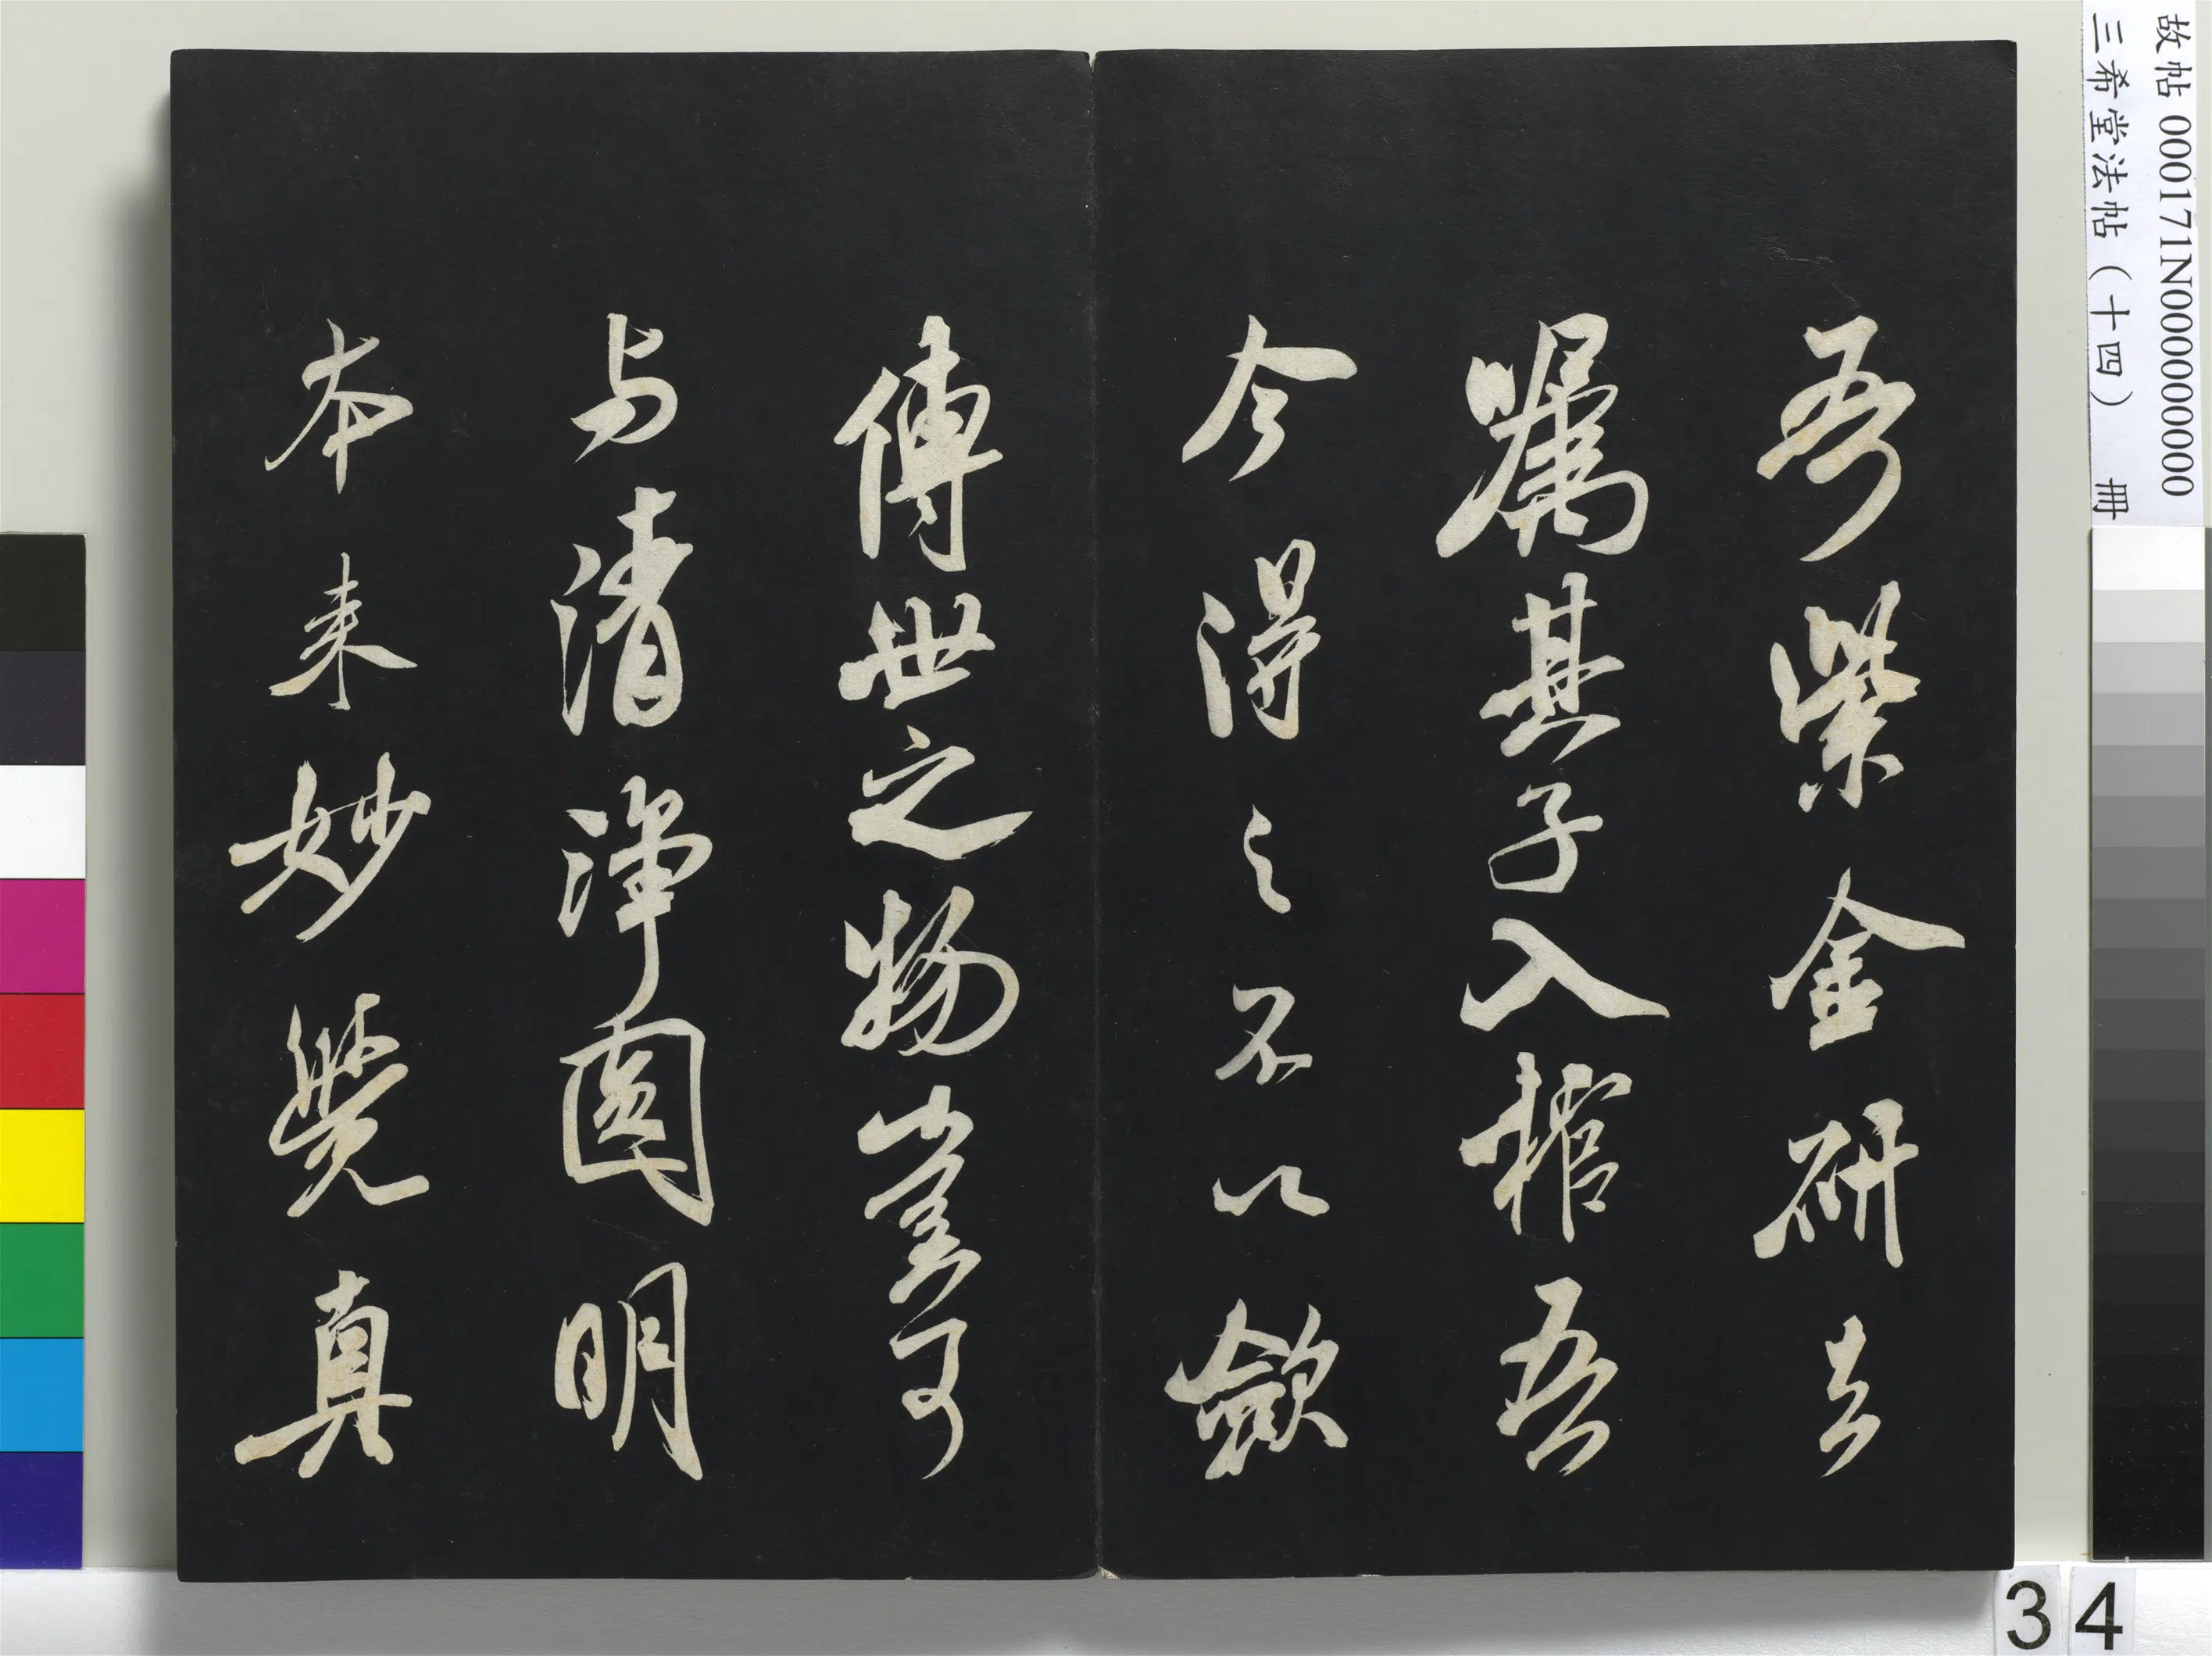 吾紫金研去
嘱其子入棺吾
今得之不以斂
傳世之物豈可
与清淨圓明
本来妙覺真
故帖 000171N000000000
三希堂法帖（十四） 冊
34